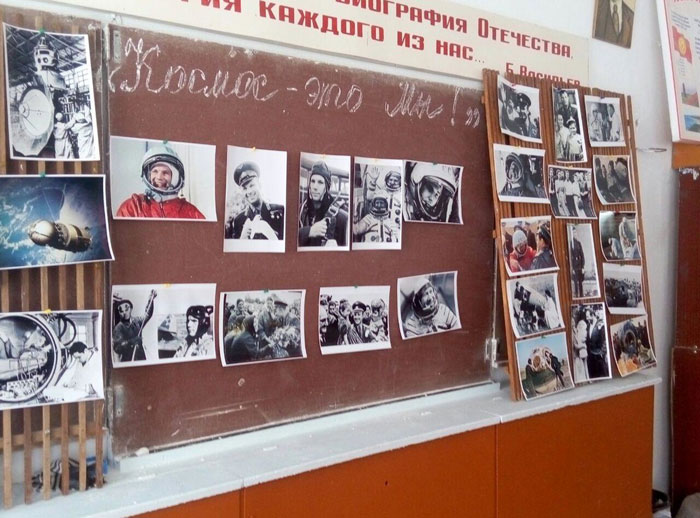 БИОГРАФИЯ ОТЕЧЕСТВА.
КАЖДОГО ИЗ НАС...
Б. Васильев
„Космос - это мы!”